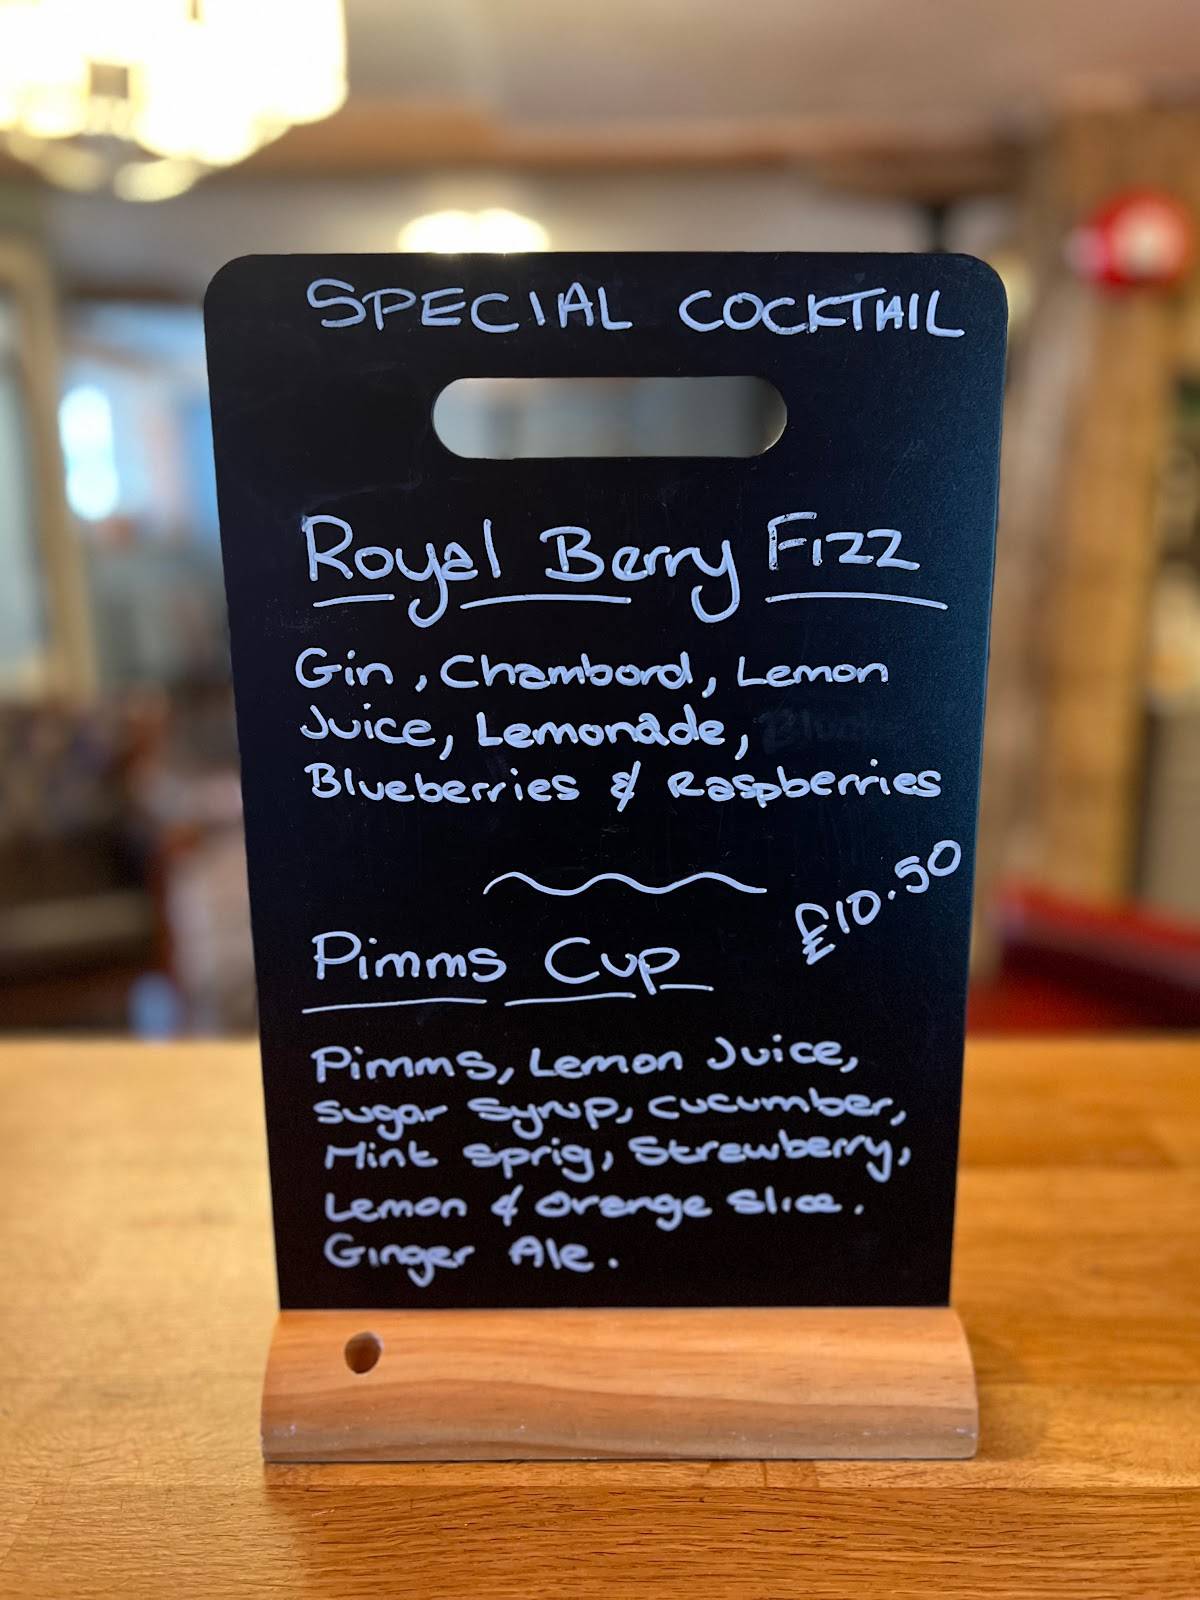 SPECIAL COCKTAIL
Royal Berry Fizz
Gin, Chambord, Lemon
Juice, Lemonade,
Blueberries & Raspberries
£10.50
Pimms Cup
Pimms, Lemon Juice,
Sugar Syrup, Cucumber,
Mint Sprig, Strawberry,
Lemon & Orange Slice.
Ginger Ale.